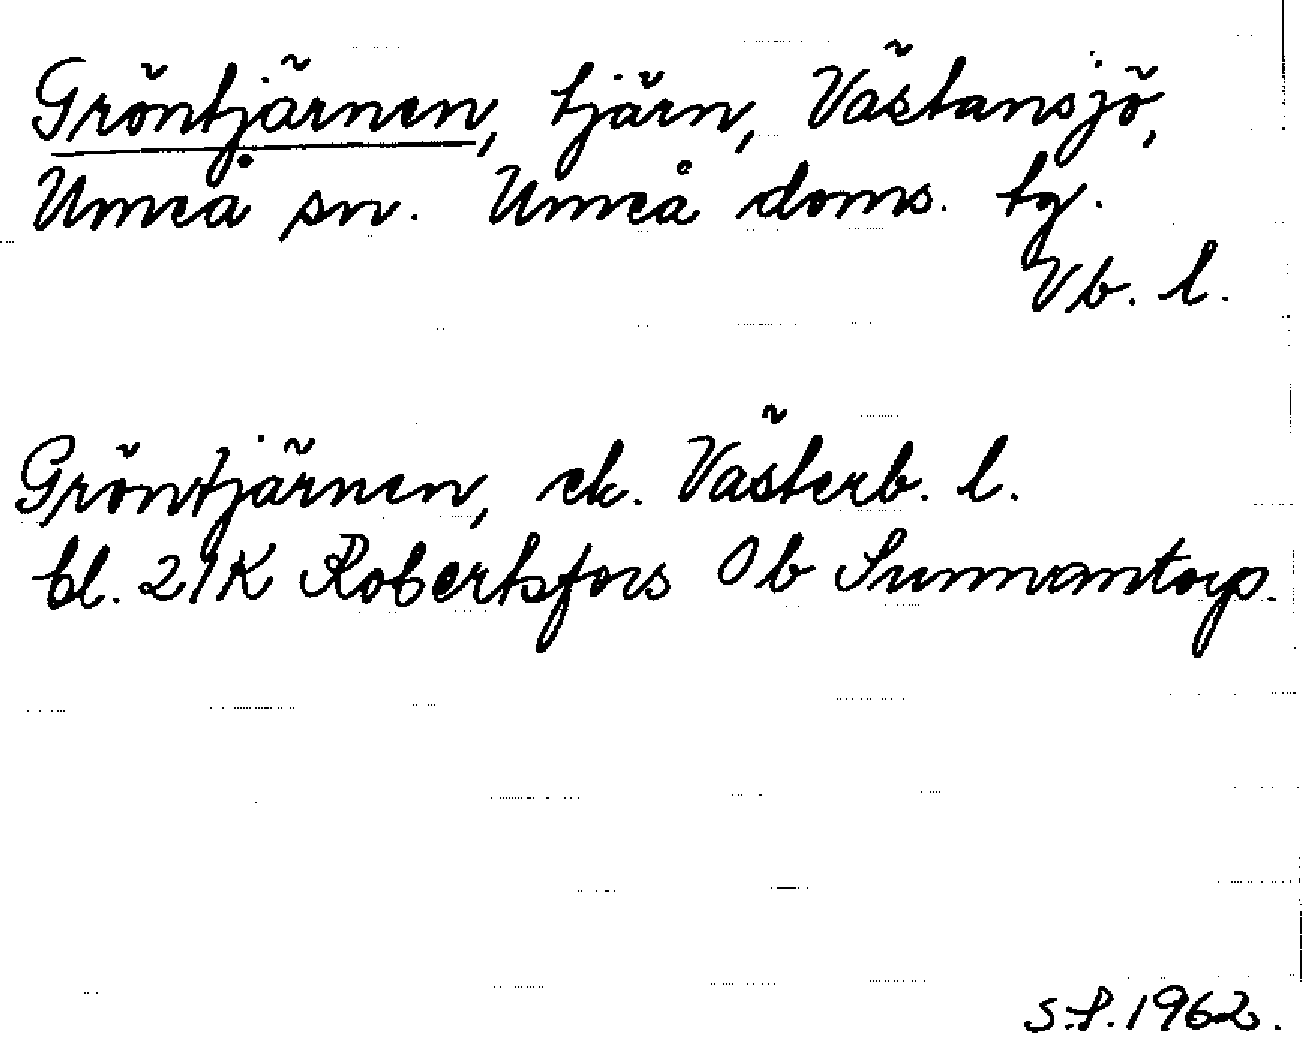 Gröntjärnen, tjärn, Västansjö,
Umeå sn. Umeå doms. tg.
Vb. l.
Gröntjärnen, ek. Västerb. l.
bl. 21K Robertsfors Ob Sunnantorp.
S.P. 1962.